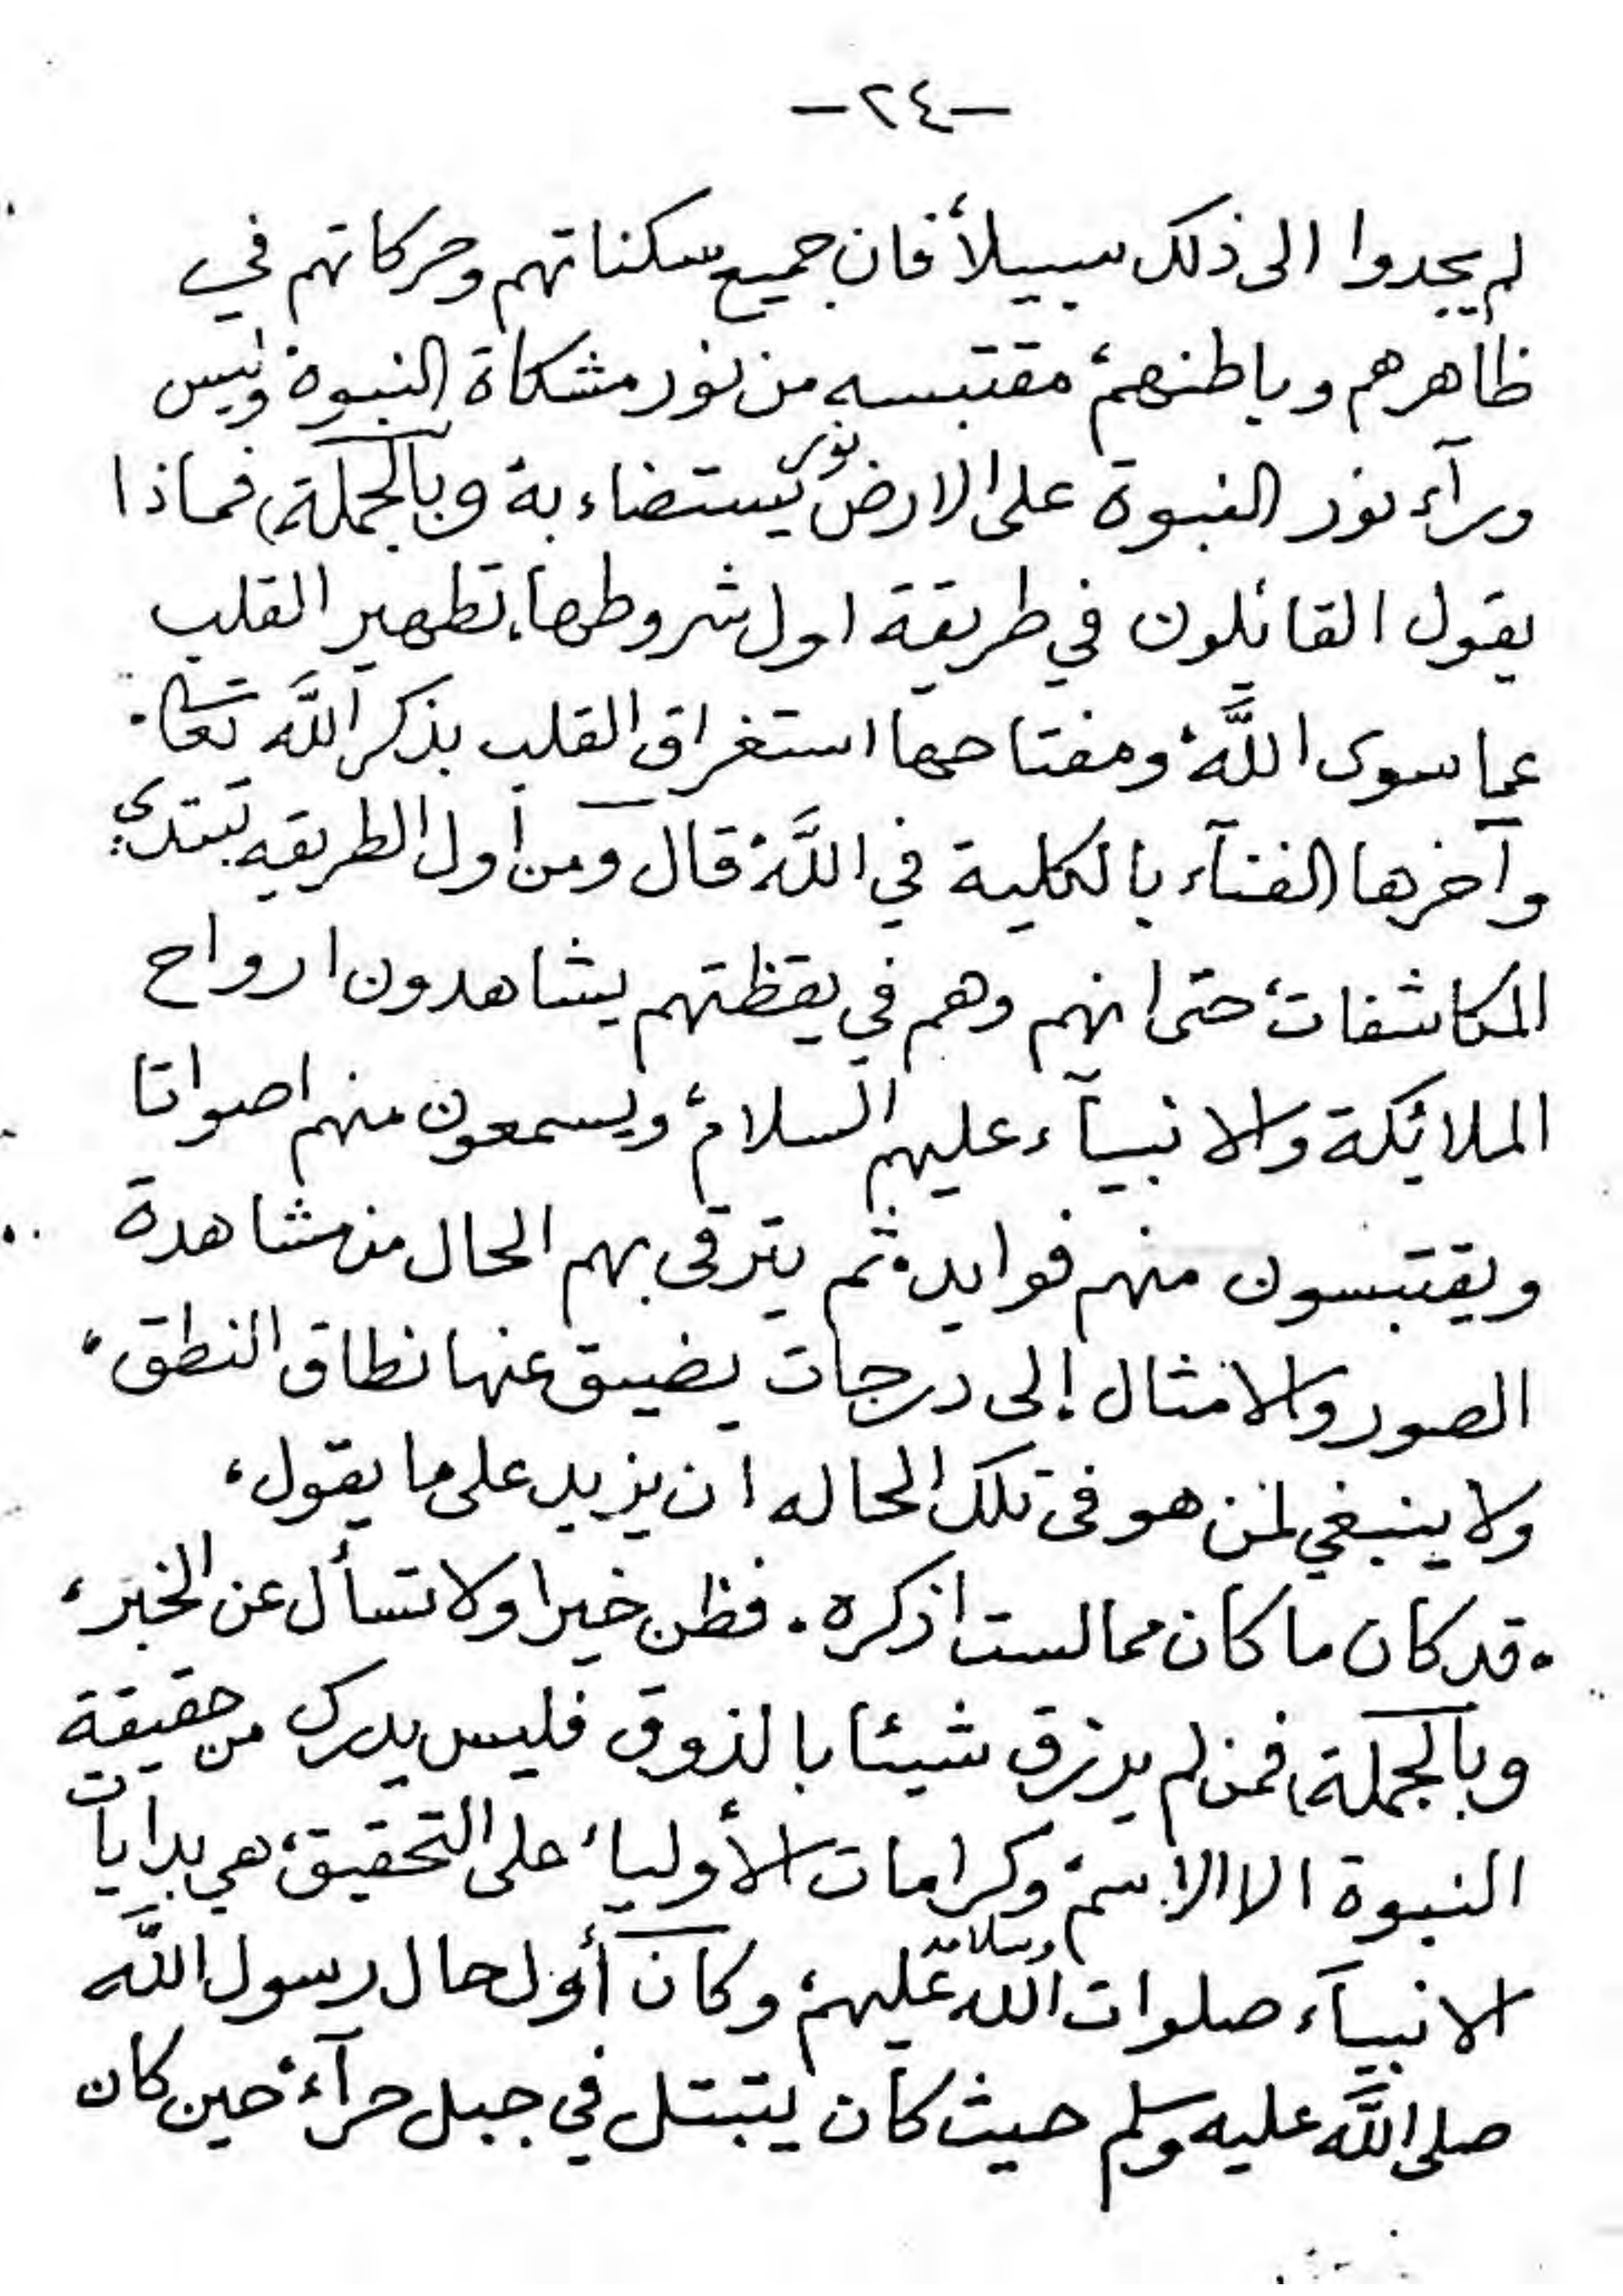 -٢٤-
لم يجدوا الى ذلك سبيلاً فان جميع سكناتهم وحركاتهم في
ظاهرهم وباطنهم، مقتبسه من نور مشكاة النبوة وليس
ورآء نور النبوة على الارض نور يستضاء به وبالجملة، فماذا
يقول القائلون في طريقة اول شروطها، تطهير القلب
عما سوى اللَّه، ومفتاحها استغراق القلب بذكر اللَّه تعالى.
وآخرها الفنآء بالكلية في اللَّه، قال ومن أول الطريقه تبتدئ
المكاشفات، حتى انهم وهم في يقظتهم يشاهدون ارواح
الملائكة والانبيآء عليهم السلام، ويسمعون منهم اصواتا
ويقتبسون منهم فوايد، ثم يترقى بهم الحال من مشاهدة
الصور والامثال إلى درجات يضيق عنها نطاق النطق،
ولا ينبغي لمن هو فى تلك الحاله ان يزيد على ما يقول،
. قد كان ما كان مما لست اذكره . فظن خيرا ولا تسأل عن الخبر،
وبالجملة، فمن لم يرزق شيئا بالذوق فليس يدرك من حقيقة
النبوة الا الاسم، وكرامات الأولياء على التحقيق، هي بدايات
الانبيآء صلوات الله وسلامه عليهم، وكان أول حال رسول اللَّه
صلى اللَّه عليه وسلم حيث كان يتبتل في جبل حرآء، حين كان